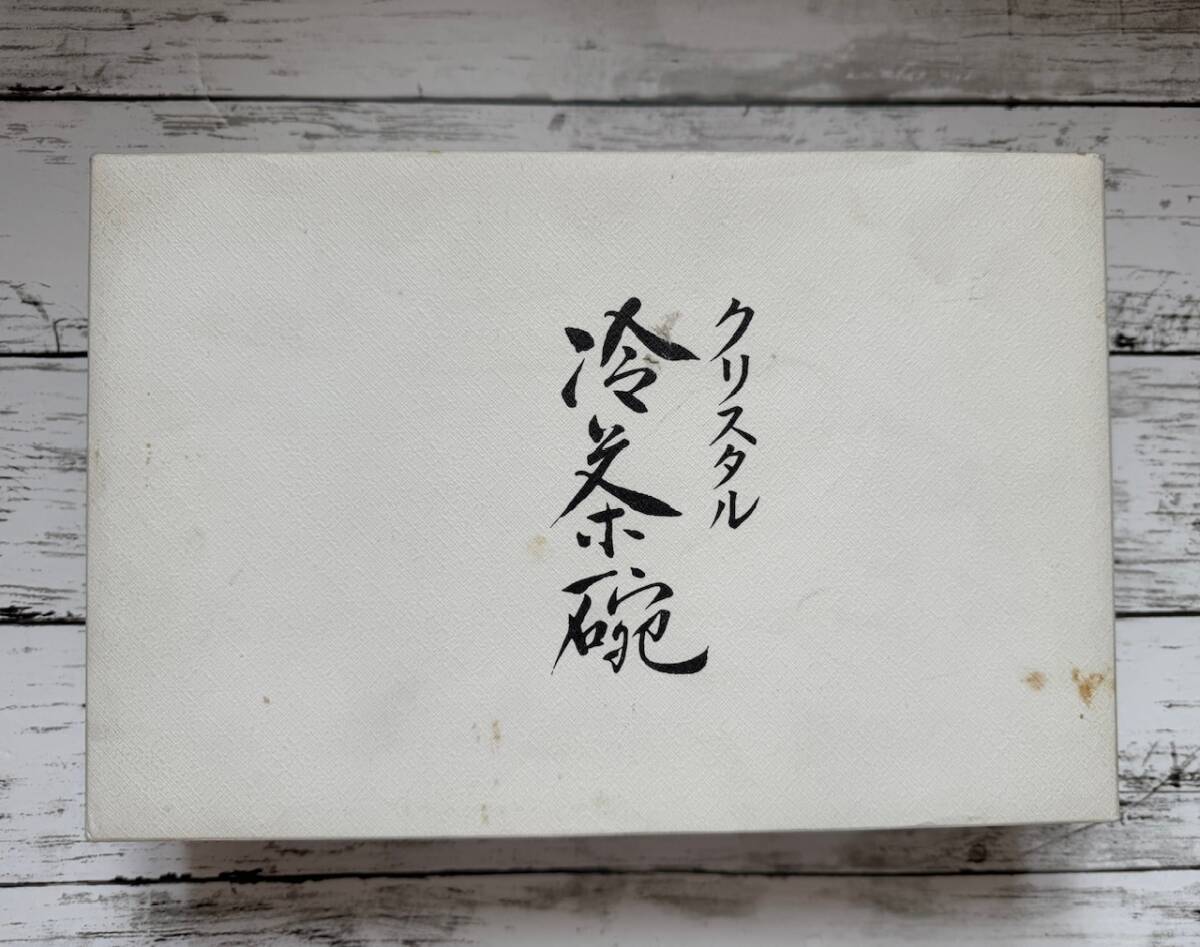 クリスタル
冷茶碗